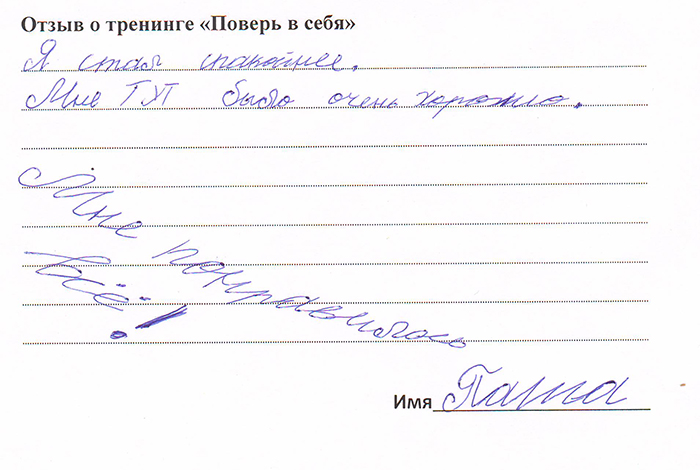 Отзыв о тренинге «Поверь в себя»
Я стал спакойнее.
Мне тут было очень хорошо.
Мне понравилось
всё!
Имя Паша